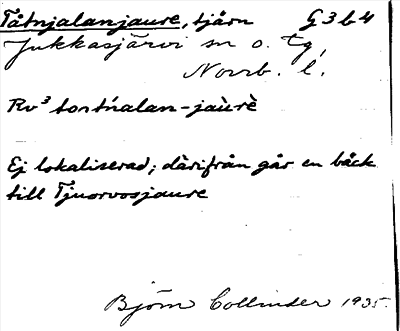 Tåtnjalanjaure, tjärn G3b4
Jukkasjärvi sn o. tg,
Norrb. l.
Rv³ tɑtńalan-jaùrè
Ej lokaliserad; därifrån går en bäck
till Tjuorvosjaure
Björn Collinder 1935.